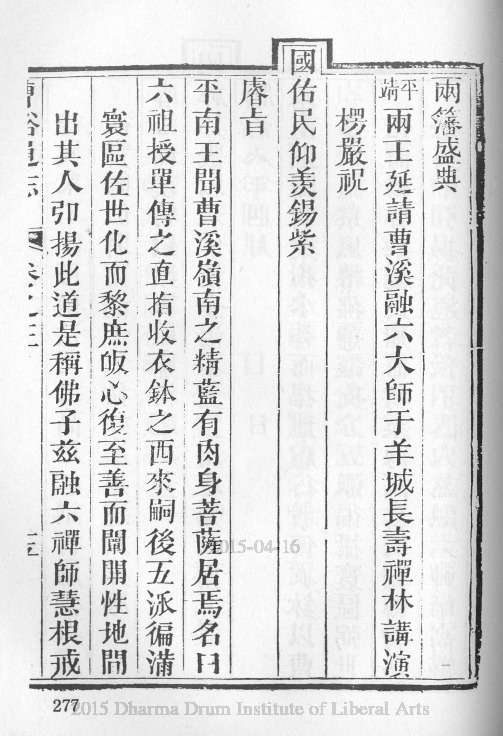 兩籓盛典
平靖兩王延請曹溪融六大師于羊城長壽禪林講演
楞嚴祝
國佑民仰羡錫紫
睿旨
平南王聞曹溪嶺南之精藍有肉身菩薩居焉名曰
六祖授單傳之直指收衣鉢之西來嗣後五派徧滿
寰區佐世化而黎庶皈心復至善而闡開性地間
出其人卬揚此道是稱佛子兹融六禪師慧根戒
曹溪通志
卷之三
277
2015-04-16
2015 Dharma Drum Institute of Liberal Arts